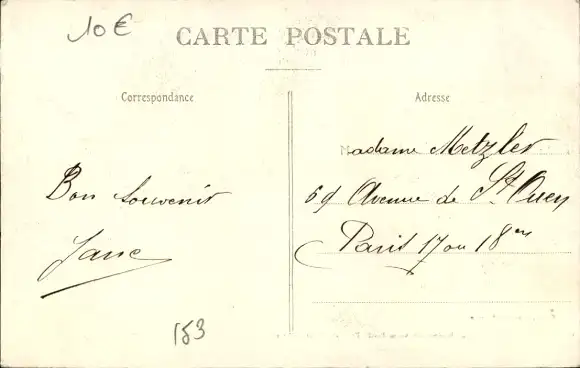 10€
CARTE POSTALE
Correspondance
Adresse
Bon Souvenir
Jane
Madame Metzler
69 Avenue de St. Ouen
Paris 17 ou 18em
153